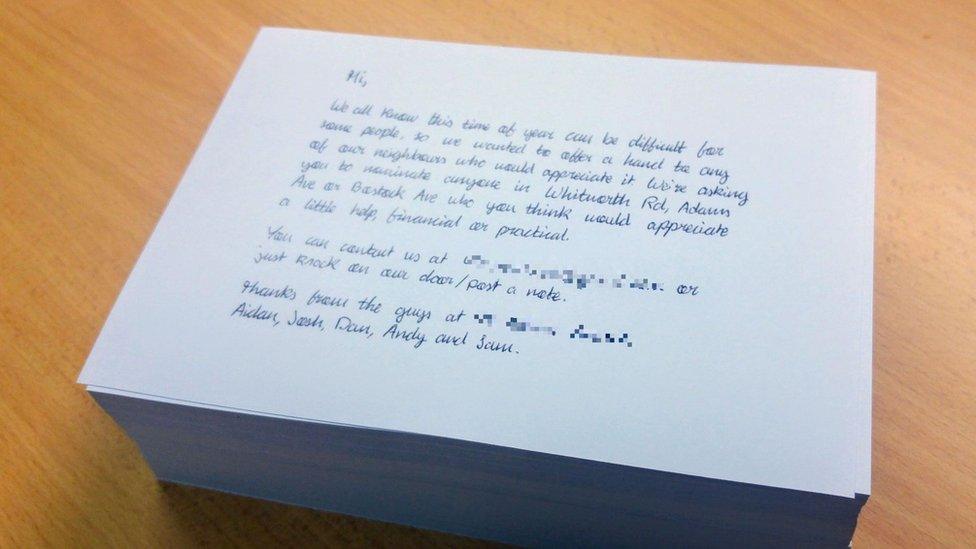 Hi,
We all know this time of year can be difficult for
some people, so we wanted to offer a hand to any
of our neighbours who would appreciate it. We're asking
you to nominate anyone in Whitworth Rd, Adams
Ave or Bostock Ave who you think would appreciate
a little help, financial or practical.
You can contact us at or
just knock on our door/post a note.
Thanks from the guys at
Aidan, Josh, Dan, Andy and Sam.